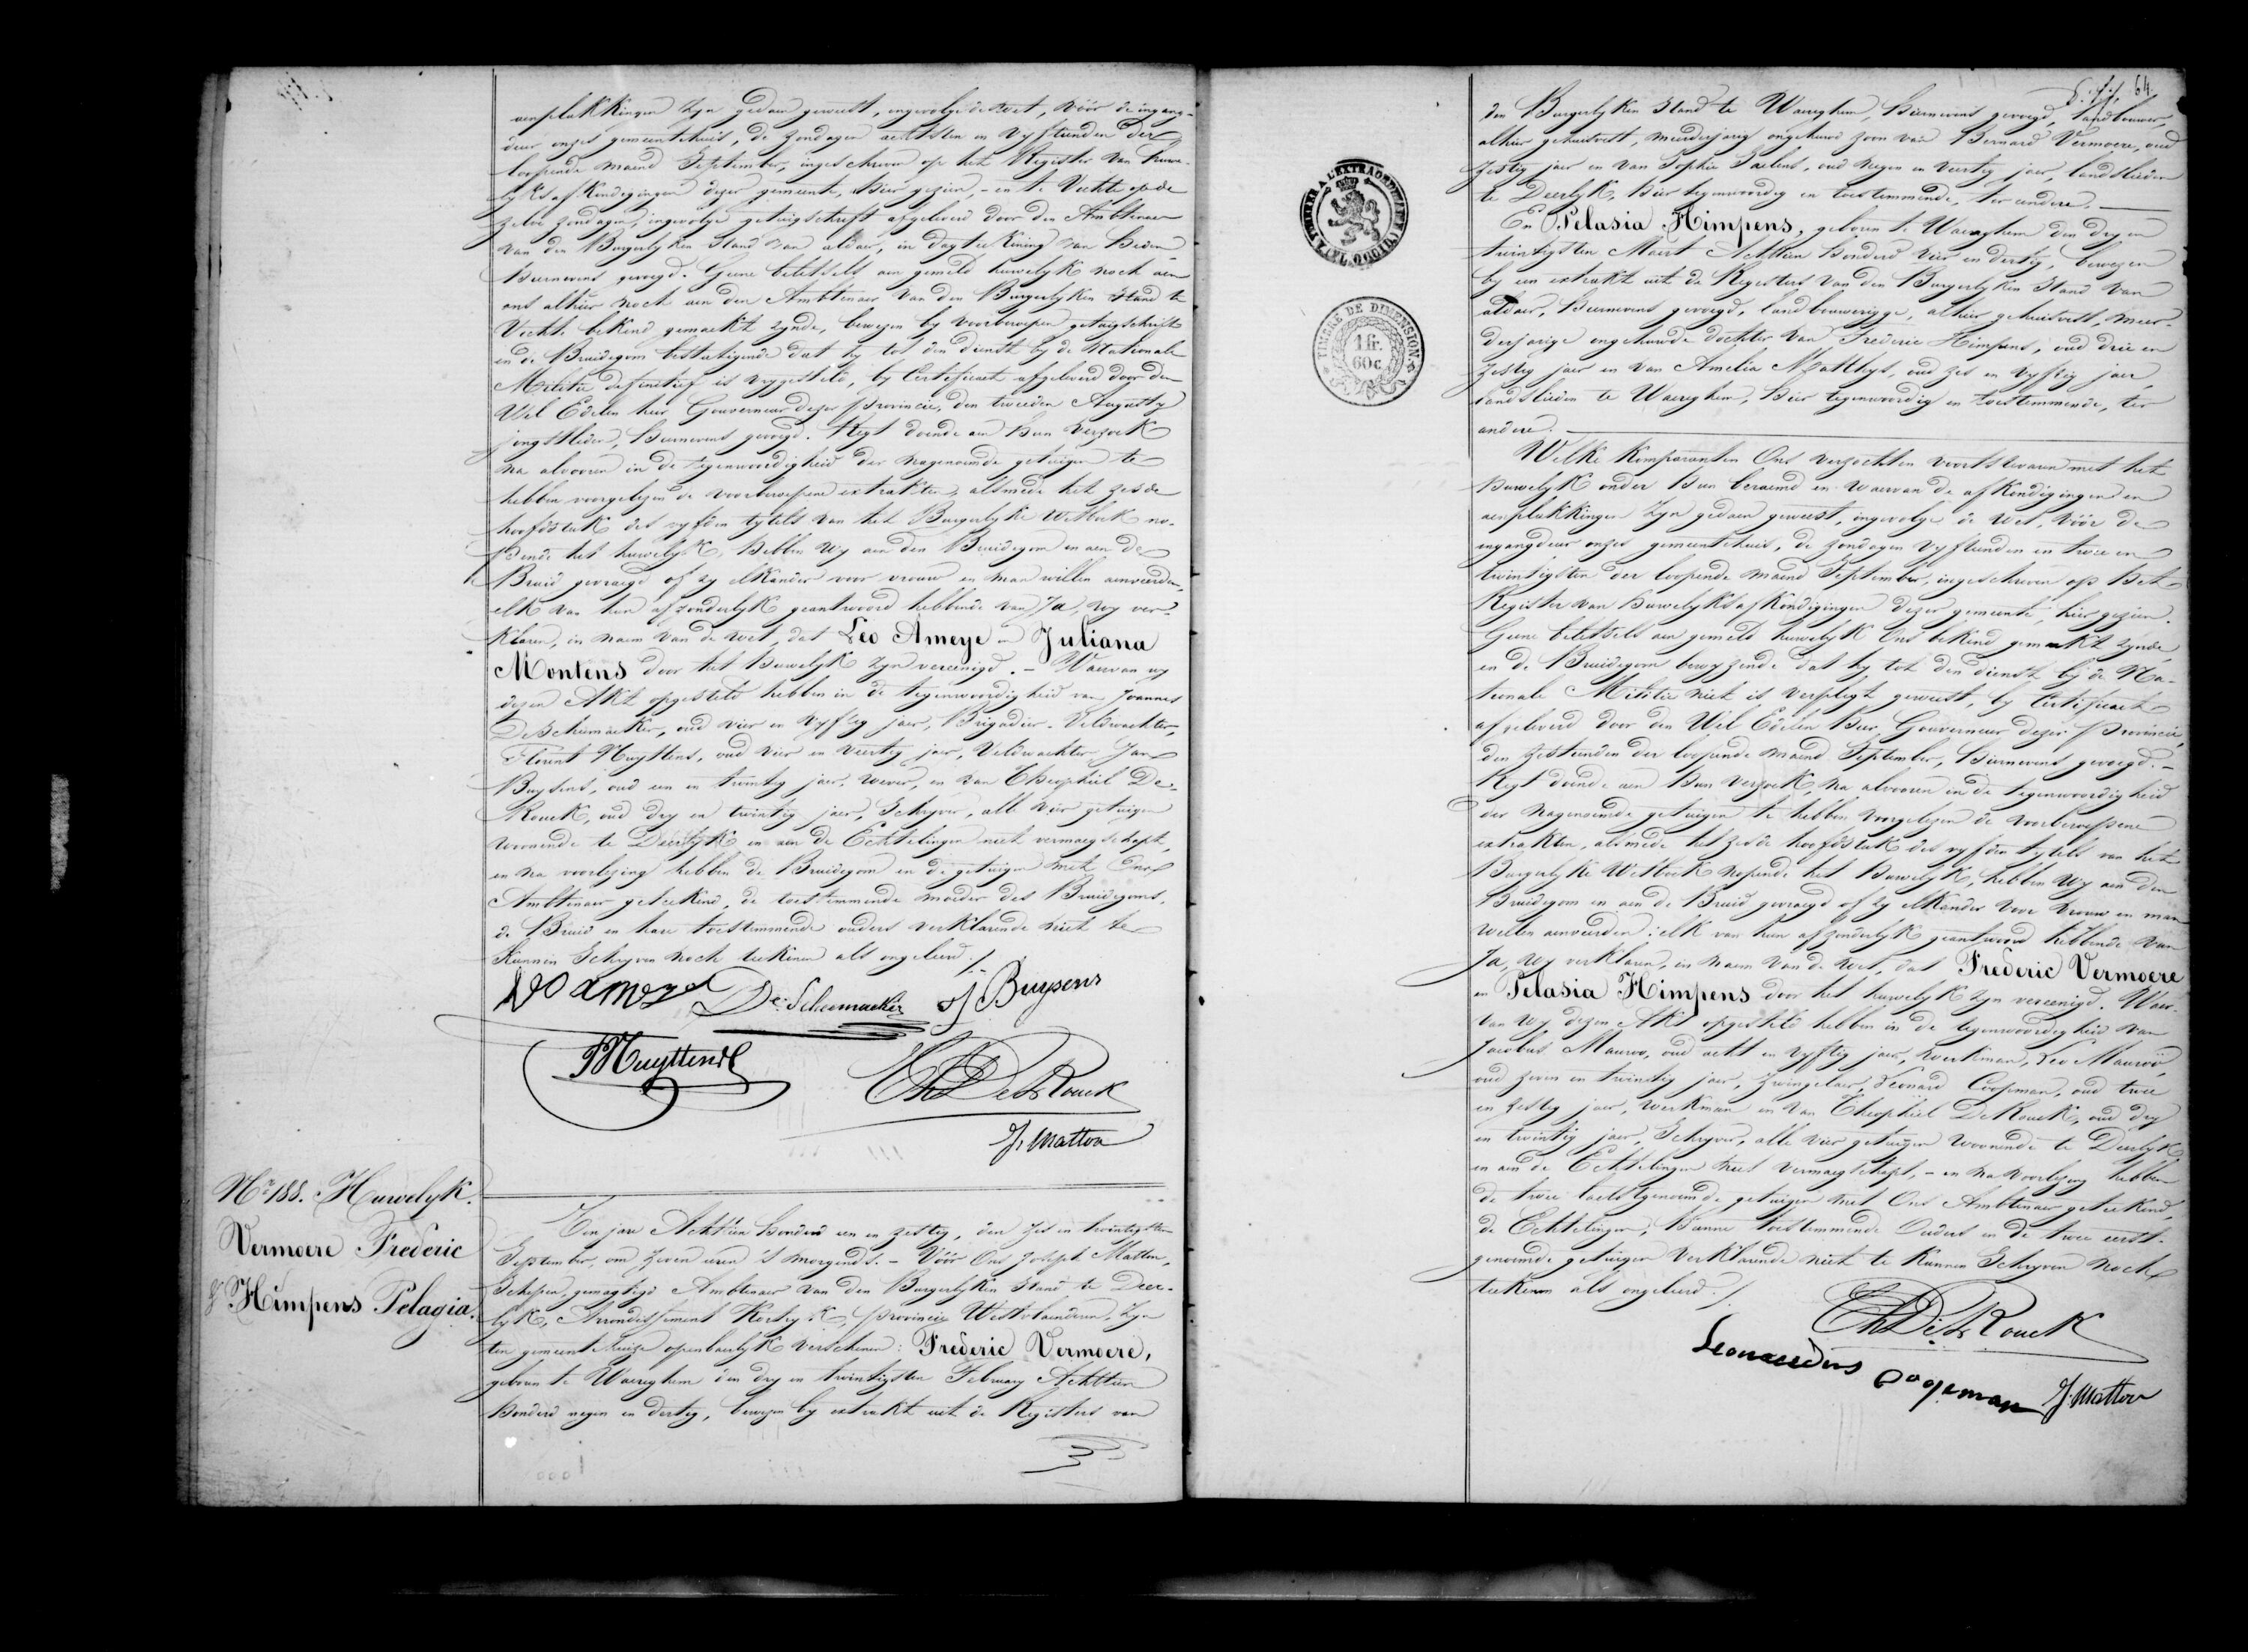 aenplakkingen zyn gedaen geweest, ingevolge de wet, vóór de ingang-
deur onzes gemeentehuis, de zondagen achtsten en vyftienden der
loopende maend September, ingeschreven op het Register van huwe-
lyks afkondigingen dezer gemeente, hier gezien, - en te Vichte op de
zelve zondagen, ingevolge getuigschrift afgeleverd door den Ambtenaer
van den Burgerlyken Stand van aldaer, in dagteekening van heden
hiernevens gevoegd. Geene beletsels aen gemeld huwelyk noch aen
ons alhier noch aen den Ambtenaer van den Burgerlyken Stand te
Vichte bekend gemaekt zynde, bewezen by voorberoepen getuigschrift
en de Bruidegom bestatigende dat hy tot den dienst by de Nationale
Militie definitief is vrygesteld, by Certificaet afgeleverd door den
Wel Edelen heer Gouverneur dezer provincie, den tweeden Augusty
jongstleden, hiernevens gevoegd. Regt doende aen hun verzoek
na alvooren in de tegenwoordigheid der nagenoemde getuigen te
hebben voorgelezen de voorberoepene extrakten, alsmede het zesde
hoofdstuk des vyfden tytels van het Burgerlyke Wetboek no-
pende het huwelyk, hebben wy aen den Bruidegom en aen de
Bruid gevraegd of zy elkander voor vrouw en man willen aenveerden,
elk van hun afzonderlyk geantwoord hebbende van Ja, wy ver-
klaren, in naem van de wet, dat Leo Ameye en Juliana
Montens door het huwelyk zyn vereenigd. - Waervan wy
dezen Akt opgesteld hebben in de tegenwoordigheid van Joannes
DeScheemaeker, oud vier en vyftig jaer, Brigadier-Veldwachter,
Florent Nuyttens, oud vier en veertig jaer, Veldwachter, Jan
Buysens, oud een en twintig jaer, wever, en van Theophiel De-
Rouck, oud dry en twintig jaer, Schryver, alle vier getuigen
woonende te Deerlyk en aen de Echtelingen niet vermaegschapt,
en na voorlezing hebben de Bruidegom en de getuigen met Ons
Ambtenaer geteekend, de toestemmende moeder des Bruidegoms,
de Bruid en hare toestemmende ouders verklarende niet te
kunnen schryven noch teekenen als ongeleerd./.
De Scheemaeker J Buysens
Th DeRouck
J. Matton
Nr. 188. Huwelyk.
Vermoere Frederic
& Himpens Pelagia.
Ten jare Achttien honderd een en zestig, den zes en twintigsten
September, om zeven uren 's morgends. - Vóór Ons Joseph Matton,
Schepen, gemagtigd Ambtenaer van den Burgerlyken Stand te Deer-
lyk, Arrondissement Kortryk, provincie Westvlaenderen, zyn
ten gemeentehuize openbaerlyk verschenen: Frederic Vermoere,
geboren te Waereghem den dry en twintigsten February Achttien
honderd negen en dertig, bewezen by extrakt uit de Registers van
64
TIMBRE A L'EXTRAORDINAIRE
TIMBRE DE DIMENSION
1 fr.
60 c.
den Burgerlyken Stand te Waereghem, hiernevens gevoegd, landbouwer,
alhier gehuisvest, meerderjarig ongehuwd zoon van Bernard Vermoere, oud
zestig jaer en van Sophie Taelens, oud negen en veertig jaer, landslieden
te Deerlyk, hier tegenwoordig en toestemmende, ter eendere. -
En Pelasia Himpens, geboren te Waereghem den dry en
twintigsten Maert Achttien honderd vier en dertig, bewezen
by een extrakt uit de Registers van den Burgerlyken Stand van
aldaer, hiernevens gevoegd, landbouwerigge, alhier gehuisvest, meer-
derjarige ongehuwde dochter van Frederic Himpens, oud drie en
zestig jaer en van Amelia Matthys, oud zes en vyftig jaer,
landslieden te Waereghem, hier tegenwoordig en toestemmende, ter
andere. -
Welke Komparanten Ons verzochten voorts te varen met het
huwelyk onder hun beraemd en waervan de afkondigingen en
aenplakkingen zyn gedaen geweest, ingevolge de Wet, vóór de
ingangdeur onzes gemeentehuis, de zondagen vyftienden en twee en
twintigsten der loopende maend September, ingeschreven op het
Register van huwelyks afkondigingen dezer gemeente, hier gezien.
Geene beletsels aen gemeld huwelyk Ons bekend gemaekt zynde,
en de Bruidegom bewyzende dat hy tot den dienst by de Na-
tionale Militie niet is verpligt geweest, by Certificaet
afgeleverd door den Wel Edelen heer Gouverneur dezer provincie,
den zestienden der loopende maend September, hiernevens gevoegd. -
Regt doende aen hun verzoek, na alvooren in de tegenwoordigheid
der nagenoemde getuigen te hebben voorgelezen de voorberoepene
extrakten, alsmede het zesde hoofdstuk des vyfden tytels van het
Burgerlyke Wetboek nopende het huwelyk, hebben wy aen den
Bruidegom en aen de Bruid gevraegd of zy elkander voor vrouw en man
willen aenveerden: elk van hun afzonderlyk geantwoord hebbende van
Ja, wy verklaren, in naem van de wet, dat Frederic Vermoere
en Pelasia Himpens door het huwelyk zyn vereenigd. Waer-
van wy dezen Akt opgesteld hebben in de tegenwoordigheid van
Jacobus Mauroo, oud acht en vyftig jaer, werkman, Leo Mauroo,
oud zeven en twintig jaer, zwingelaer, Leonard Coopman, oud twee
en zestig jaer, werkman en van Theophiel DeRouck, oud dry
en twintig jaer, Schryver, alle vier getuigen woonende te Deerlyk
en aen de Echtelingen niet vermaegschapt, - en na voorlezing hebben
de twee laetstgenoemde getuigen met Ons Ambtenaer geteekend,
de Echtelingen, hunne toestemmende Ouders en de twee eerst-
genoemde getuigen verklarende niet te kunnen schryven noch
teekenen als ongeleerd./.
Th DeRouck
J. Matton